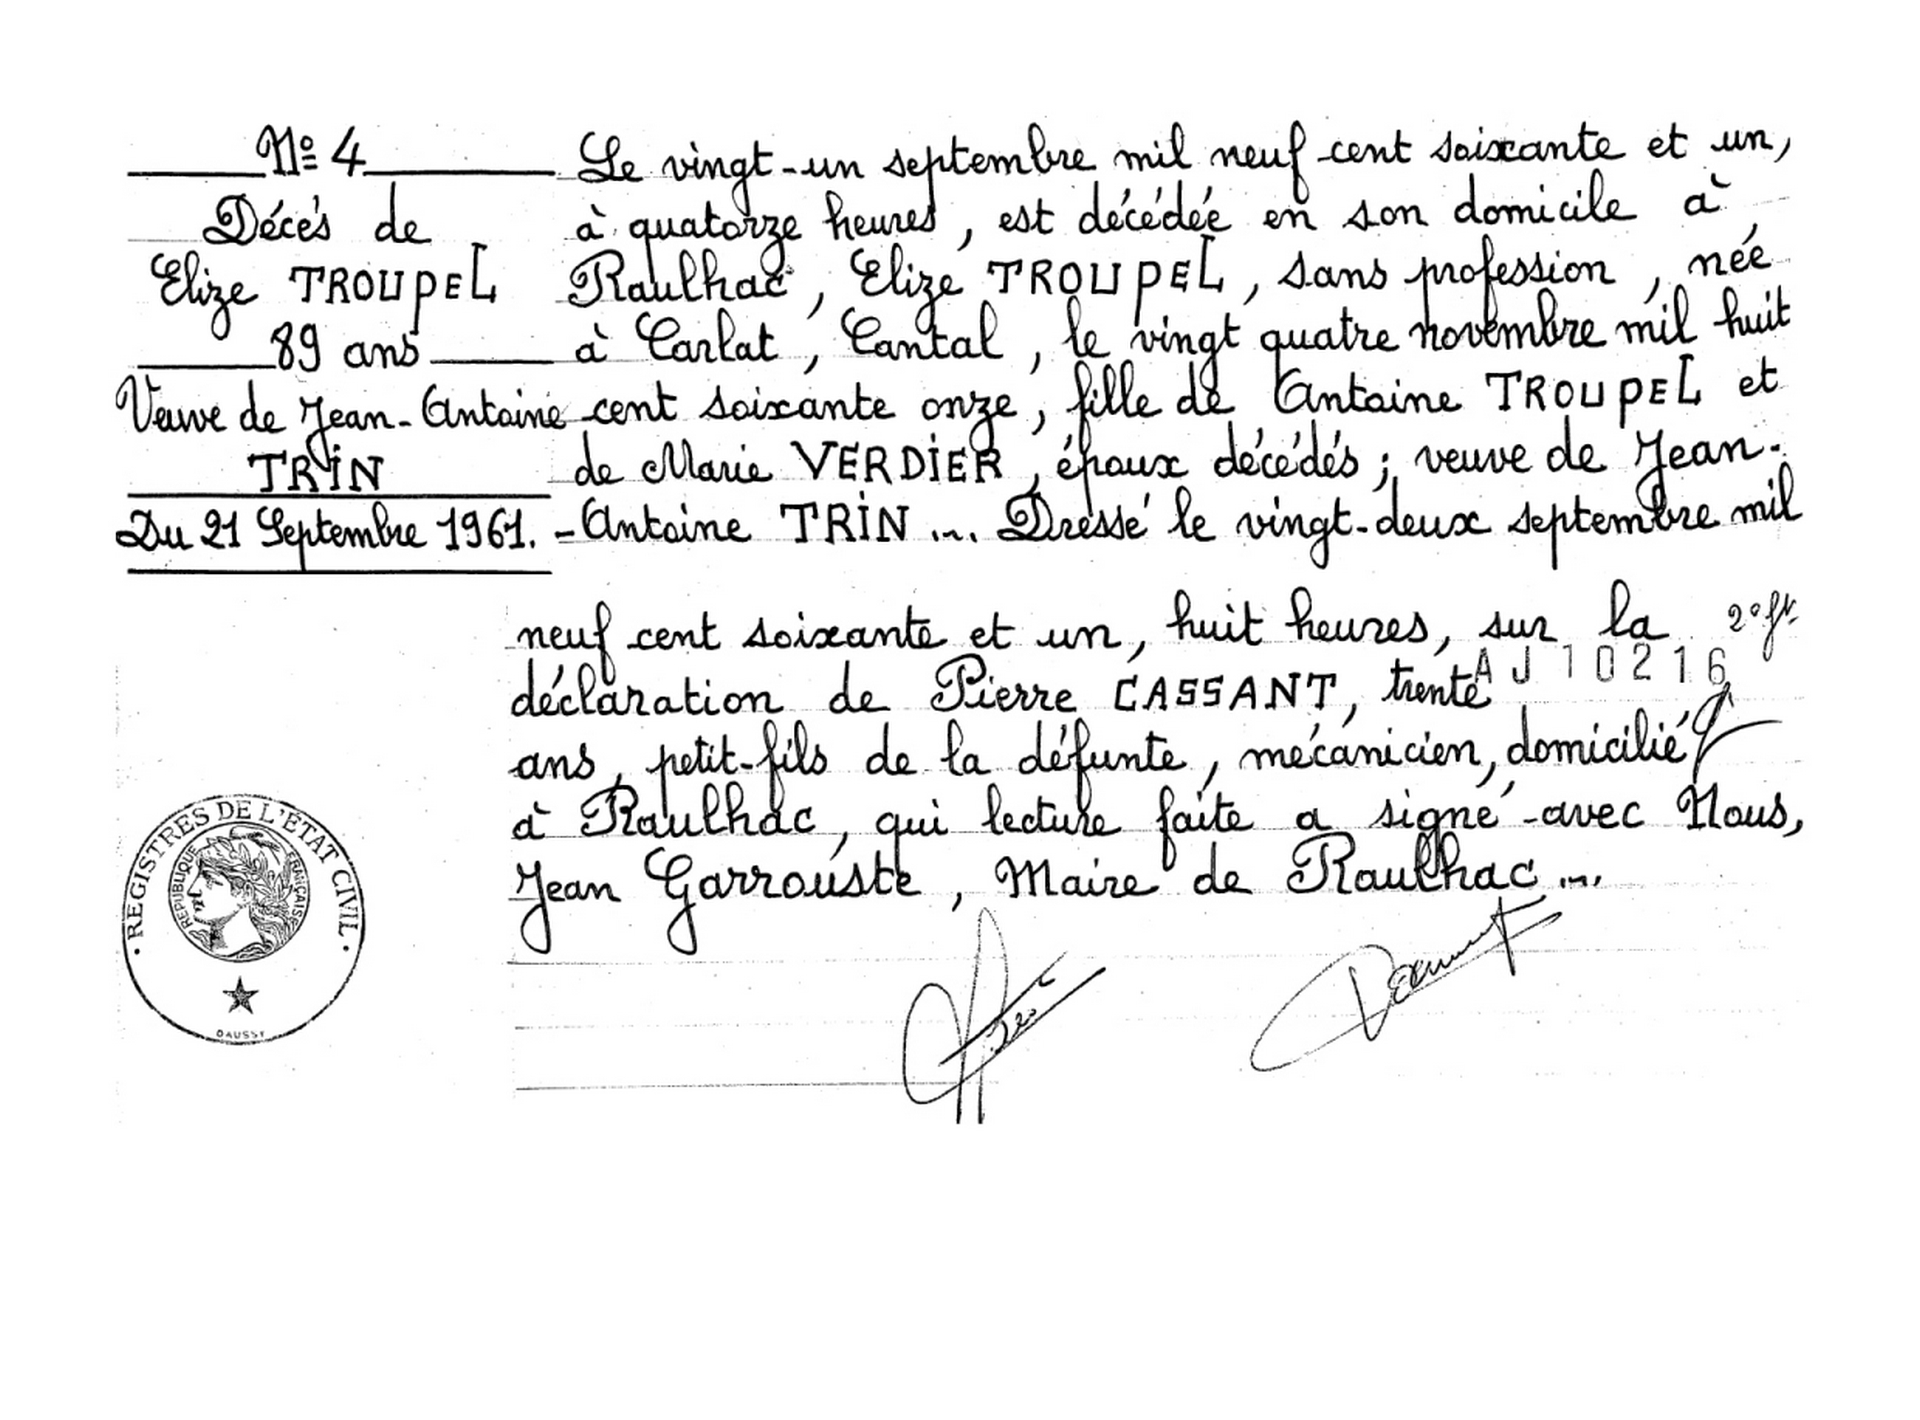 Nº 4
Décés de
Elize TROUPEL
89 ans
Veuve de Jean-Antoine
TRIN
Du 21 Septembre 1961.
Le vingt-un septembre mil neuf cent soixante et un,
à quatorze heures, est décédée en son domicile à
Raulhac, Elize TROUPEL, sans profession, née
à Carlat, Cantal, le vingt quatre novembre mil huit
cent soixante onze, fille de Antoine TROUPEL et
de Marie VERDIER, époux décédés; veuve de Jean-
-Antoine TRIN ... Dressé le vingt-deux septembre mil
neuf cent soixante et un, huit heures, sur la
déclaration de Pierre CASSANT, trente
AJ 10216
ans, petit-fils de la défunte, mécanicien, domicilié
à Raulhac, qui lecture faite a signé avec Nous,
Jean Garrouste, Maire de Raulhac ...
REGISTRES DE L'ÉTAT CIVIL
RÉPUBLIQUE FRANÇAISE
DAUSSY